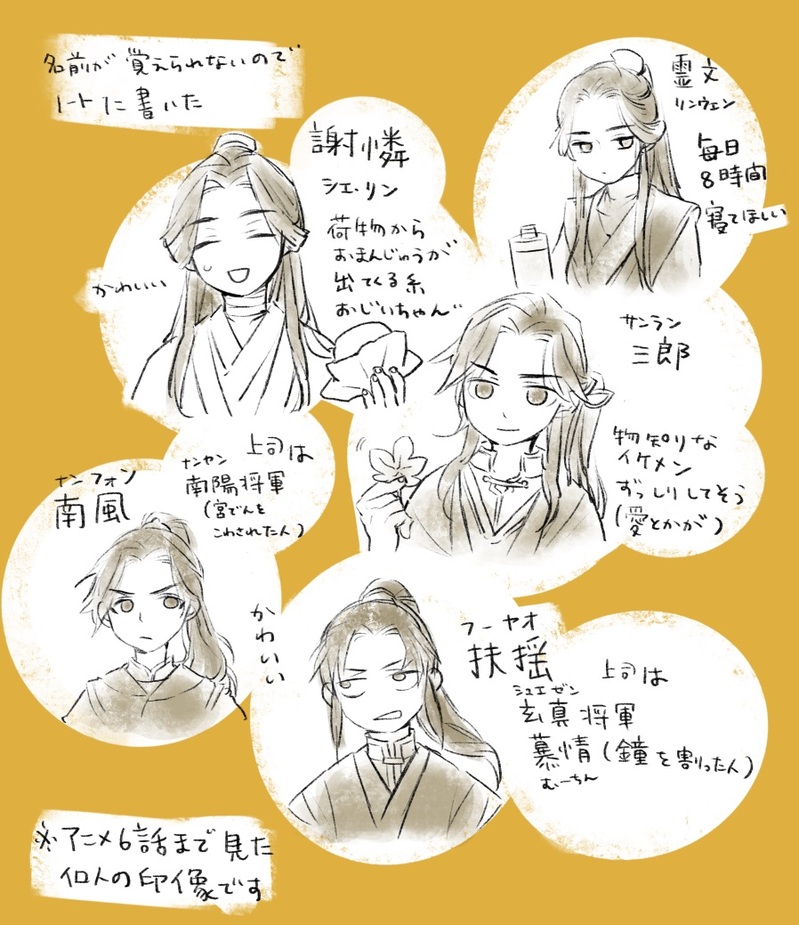 名前が覚えられないので
ノートに書いた
謝憐
シエ・リン
荷物から
おまんじゅうが
出てくる系
おじいちゃん
かわいい
霊文
リンウェン
毎日
8時間
寝てほしい
サンラン
三郎
物知りな
イケメン
ずっしりしてそう
(愛とかが)
ナンフォン
南風
上司は
ナンヤン
南陽将軍
(宮でんを
こわされたん)
かわいい
フーヤオ
扶揺
上司は
シュエゼン
玄真将軍
慕情(鐘を割ったん)
むーちん
※アニメ6話まで見た
イロ人の印像です